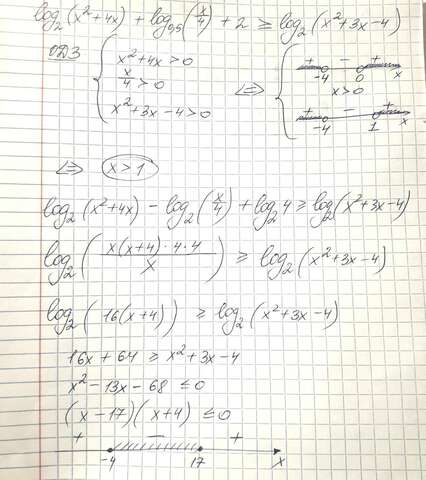 log₂(x²+4x) + log₀,₅(x/4) + 2 ≥ log₂(x²+3x-4)
ОДЗ
{ x²+4x>0
x/4>0
x²+3x-4>0
⇔
{ + - +
-4 0 x
x>0
+ - +
-4 1 x
⇔ x>1
log₂(x²+4x) - log₂(x/4) + log₂4 ≥ log₂(x²+3x-4)
log₂(x(x+4)·4·4/x) ≥ log₂(x²+3x-4)
log₂(16(x+4)) ≥ log₂(x²+3x-4)
16x + 64 ≥ x²+3x-4
x²-13x-68 ≤0
(x-17)(x+4) ≤0
+ - +
-4 17 x